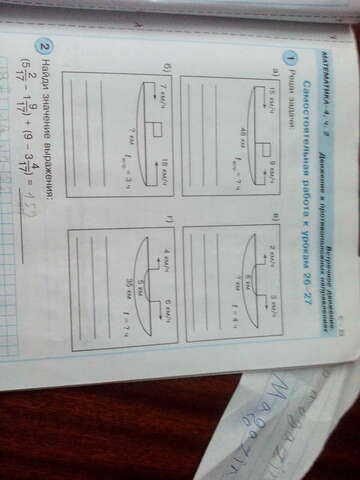 МАТЕМАТИКА–4, ч. 2
Встречное движение.
Движение в противоположных направлениях
Самостоятельная работа к урокам 26–27
1 Реши задачи.
а)
15 км/ч
9 км/ч
48 км
t встр = ? ч
б)
7 км/ч
18 км/ч
? км
t встр = 3 ч
в)
2 км/ч
3 км/ч
8 км
? км
t = 4 ч
г)
4 км/ч
6 км/ч
5 км
35 км
t = ? ч
2 Найди значение выражения:
(5 2/17 – 1 9/17) + (9 – 3 4/17) =
Magazin
co